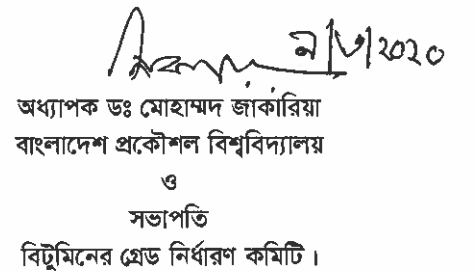 অধ্যাপক ডঃ মোহাম্মদ জাকারিয়া
বাংলাদেশ প্রকৌশল বিশ্ববিদ্যালয়
ও
সভাপতি
বিটুমিনের গ্রেড নির্ধারণ কমিটি।